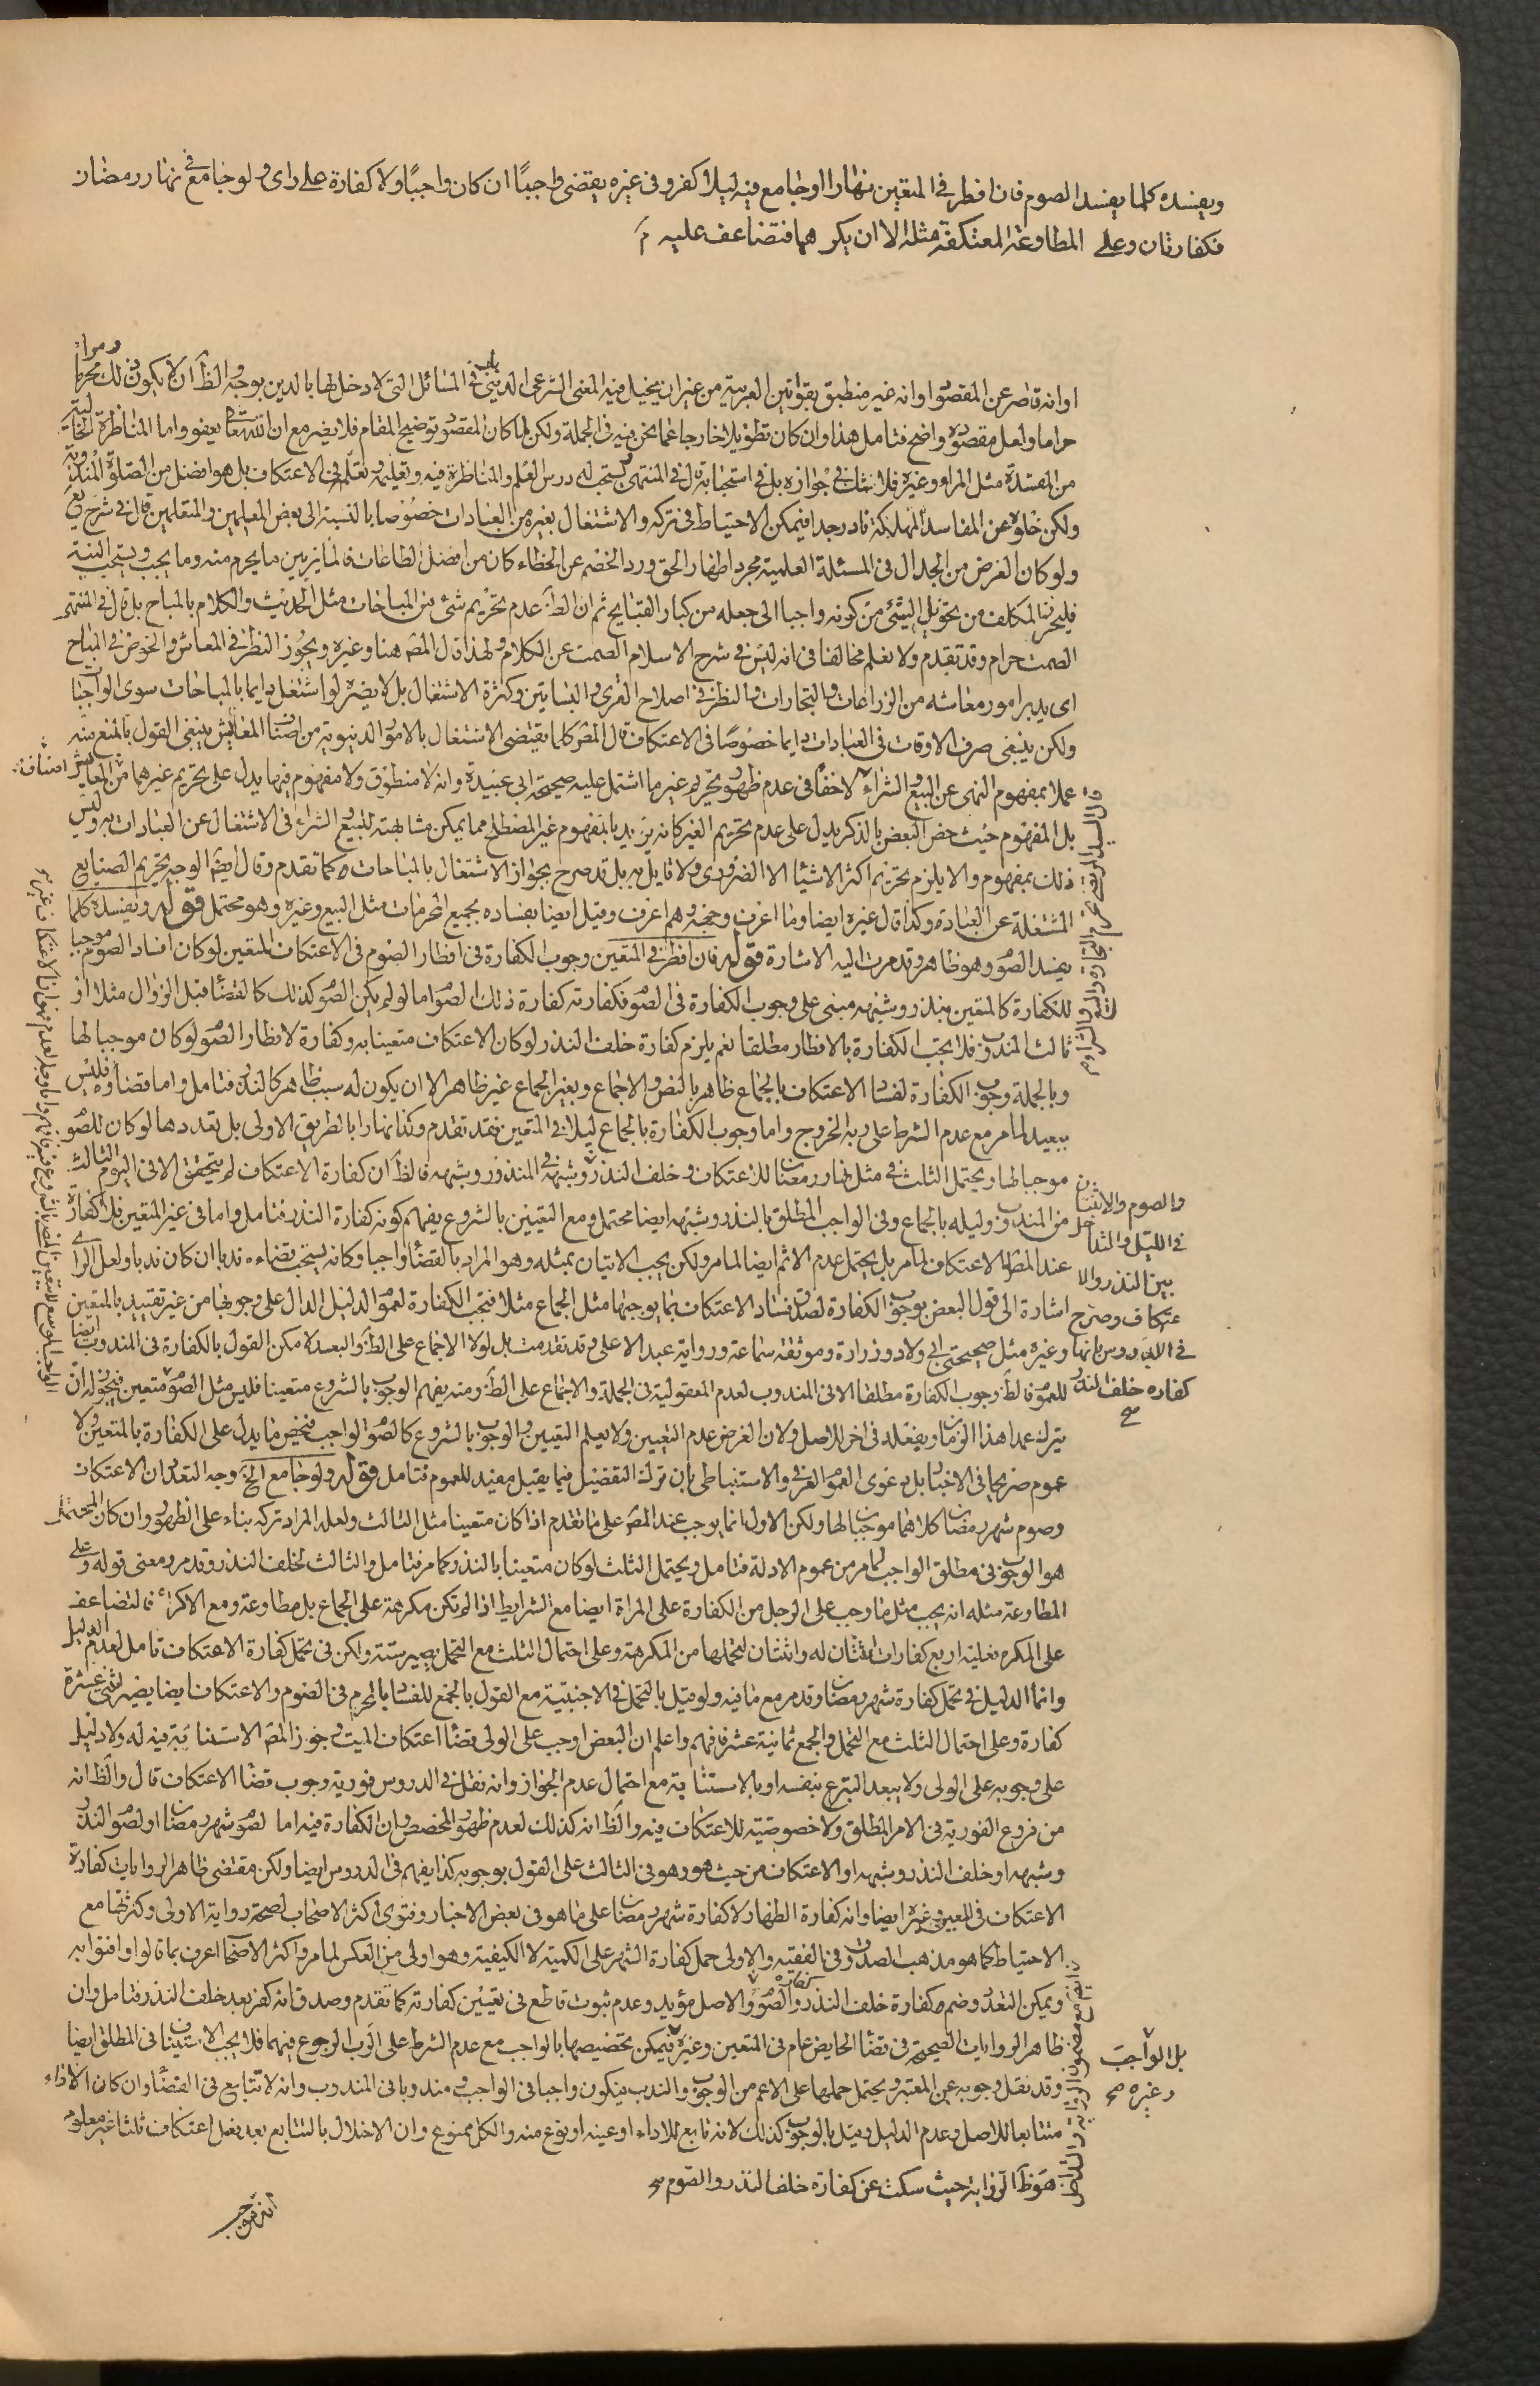 ويفسده كلما يفسد الصوم فان افطر في المتعين نهارا او جامع فيه ليلا كفر وفي غيره يقضي واجبًا ان كان واجبًا ولا كفارة على راى ولو جامع في نهار رمضان
فكفارتان وعلى المطاوعة المعتكفة مثله الا ان يكرهها فتضاعف عليه م
او انه قاصر عن المقصود او انه غير منطبق بقوانين العربية من غير ان يخيل فيه المعنى الشرعى الدينى في المسائل التى لا دخل لها بالدين بوجه والظ ان لا يكون ذلك محرما
حراما ولعل مقصوده واضح فتامل هذا وان كان تطويلا خارجا عما نحن فيه في الجملة ولكن لما كان المقصود توضيح المقام فلا يضر مع ان الله تعا يعفو واما المناظرة الخالية
من المفسدة مثل المراء وغيره فلا شك في جوازه بل في استحبابه قال في المنتهى يستحب له درس العلم والمناظرة فيه وتعليمه وتعلمه في الاعتكاف بل هو افضل من الصلوة المندوبة
ولكن خلوه عن المفاسد المهلكة نادر جدا فيمكن الاحتياط في تركه والاشتغال بغيره من العبادات خصوصا بالنسبة الى بعض المعلمين والمتعلمين قال في شرح يع
ولو كان الغرض من الجدال في المسئلة العلمية مجرد اظهار الحق ورد الخصم عن الخطاء كان من افضل الطاعات فالمايز بين ما يحرم منه وما يجب ويستحب النية
فليحرز المكلف من تحويل الشئ من كونه واجبا الى جعله من كبار القبايح ثم ان الظ عدم تحريم شئ من المباحات مثل الحديث والكلام بالمباح بل قال في المنتهى
الصمت حرام وقد تقدم ولا نعلم مخالفا في انه ليس في شرح الاسلام الصمت عن الكلام ولهذا قال المص هنا وغيره ويجوز النظر في المعاش والخوض في المباح
اى يدبر امور معاشه من الزراعات والتجارات والنظر في اصلاح القرى والبساتين وكثرة الاشتغال بل لا يضره لو اشتغل دايما بالمباحات سوى الواجبا
ولكن ينبغى صرف الاوقات في العبادات دايما خصوصًا في الاعتكاف قال المص كلما يقتضى الاشتغال بالامور الدنيوية من اصناف المعايش ينبغى القول بالمنع منه
عملا بمفهوم النهى عن البيع والشراء لا خفاء في عدم ظهور تحريم غير ما اشتمل عليه صحيحة ابي عبيدة وانه لا منطوق ولا مفهوم فيها يدل على تحريم غيرهما من اصناف المعايش
بل المفهوم حيث خص البعض بالذكر يدل على عدم تحريم الغير كانه يزيد بالمفهوم غير المصطلح مما يمكن مشابهته للبيع والشراء في الاشتغال عن العبادات به وليس
ذلك بمفهوم والا يلزم تحريم اكثر الاشياء الا الضرورى ولا قايل به بل قد صرح بجواز الاشتغال بالمباحات كما تقدم وقال ايضا الوجه تحريم الصنايع
المشتغلة عن العبادة وكذا قال غيره ايضا وما اعرف وجهه وهم اعرف وقيل ايضا بفساده بجميع المحرمات مثل البيع وغيره وهو محتمل قوله ويفسده كلما
يفسد الصوم وهو ظاهر وقد مرت اليه الاشارة قوله فان افطر في المتعين وجوب الكفارة في افطار الصوم في الاعتكاف المتعين لو كان افساد الصوم موجبا
للكفارة كالمتعين بنذر وشبهه مبنى على وجوب الكفارة في الصوم فكفارته كفارة ذلك الصوم اما لو لم يكن الصوم كذلك كالقضاء قبل الزوال مثلا او
ثالث المندوب فلا يجب الكفارة بالافطار مطلقا نعم يلزم كفارة خلف النذر لو كان الاعتكاف متعينا به وكفارة لافطار الصوم لو كان موجبا لها
وبالجملة وجوب الكفارة لفساد الاعتكاف بالجماع ظاهر بالنص والاجماع وبغير الجماع غير ظاهر الا ان يكون له سبب ظاهر كالنذر فتامل واما قضاؤه فليس
ببعيد لما مر مع عدم الشرط على ربه الخروج واما وجوب الكفارة بالجماع ليلا في المتعين فقد تقدم وكذا نهارا بالطريق الاولى بل تعددها لو كان للصوم
موجبا لها ويحتمل الثلث في مثل نهار رمضان للاعتكاف وخلف النذر وشبهه في المنذور وشبهه فالظ ان كفارة الاعتكاف لم يتحقق الا في اليوم الثالث
من المندوب وليله بالجماع وفي الواجب المطلق بالنذر وشبهه ايضا محتمل ومع التعيين بالشروع يفهم كونه كفارة النذر فتامل واما في غير المتعين فلا كفارة
عند المص الاعتكاف لما مر بل يحتمل عدم الاثم ايضا لما مر ولكن يجب الاتيان بمثله وهو المراد بالقضاء واجبا وكانه يستحب قضاءه ندبا ان كان ندبا ولعل الراى
اشارة الى قول البعض بوجوب الكفارة لصدق فساد الاعتكاف بما يوجبها مثل الجماع مثلا فتجب الكفارة لعموم الدليل الدال على وجوبها من غير تقييد بالمتعين
وغيره مثل صحيحتى ابى ولاد وزرارة وموثقة سماعة ورواية عبد الاعلى وقد تقدمت بل لولا الاجماع على الظ والبعد لا مكن القول بالكفارة في المندوب ايضا
للعموم فالظ وجوب الكفارة مطلقا الا في المندوب لعدم المعقولية في الجملة والاجماع على الظ ومنه يفهم الوجوب بالشروع متعينا فليس مثل الصوم متعين فيجوز له ان
يترك عمدا هذا الزمان ويفعله في اخر للاصل ولان الغرض عدم التعيين ولا يعلم التعيين والوجوب بالشروع كالصوم الواجب فتخصيص ما يدل على الكفارة بالمتعين ولا
عموم صريحا في الاخبار بل دعوى العموم العرفى والاستنباطى بان ترك التفصيل فيما يقبل مفيد للعموم فتامل قوله ولو جامع الخ وجه التعدد ان الاعتكاف
وصوم شهر رمضان كلاهما موجبان لها ولكن الاول انما يوجب عند المص على ما تقدم اذا كان متعينا مثل الثالث ولعله المراد تركه بناء على الظهور وان كان المحتمل
هو الوجوب في مطلق الواجب لما مر من عموم الادلة فتامل ويحتمل الثلث لو كان متعينا بالنذر كما مر فتامل والثالث لخلف النذر وقد مر ومعنى قوله وعلى
المطاوعة مثله انه يجب مثل ما وجب على الرجل من الكفارة على المراة ايضا مع الشرايط اذا لم تكن مكرهة على الجماع بل مطاوعة ومع الاكراه فالتضاعف
على المكره فعليه اربع كفارات اثنتان له واثنتان لتحملها من المكرهة وعلى احتمال الثلث مع التحمل يصير ستة ولكن في تحمل كفارة الاعتكاف تامل لعدم الدليل
وانما الدليل في تحمل كفارة شهر رمضان وقد مر مع ما فيه ولو قيل بالتحمل في الاجنبية مع القول بالجمع للفساد بالمحرم في الصوم والاعتكاف ايضا يصير اثنى عشرة
كفارة وعلى احتمال الثلث مع التحمل والجمع ثمانية عشر فافهم واعلم ان البعض اوجب على الولى قضاء اعتكاف الميت وجوز المص الاستنابة فيه له ولا دليل
على وجوبه على الولى ولا يبعد التبرع بنفسه او بالاستنابة مع احتمال عدم الجواز وانه نقل في الدروس فورية وجوب قضاء الاعتكاف قال والظ انه
من فروع الفورية في الامر المطلق ولا خصوصية للاعتكاف فيه والظ انه كذلك لعدم ظهور المخصص وان الكفارة فيه اما لصوم شهر رمضان او لصوم النذر
وشبهه او خلف النذر وشبهه او الاعتكاف من حيث هو وهو في الثالث على القول بوجوبه كذا يفهم في الدروس ايضا ولكن مقتضى ظاهر الروايات كفارة
الاعتكاف في المعين وغيره ايضا وانه كفارة الظهار لا كفارة شهر رمضان على ما هو في بعض الاخبار وفتوى اكثر الاصحاب لصحة رواية الاولى وكثرتها مع
الاحتياط كما هو مذهب الصدوق في الفقيه والاولى حمل كفارة الشهر على الكمية لا الكيفية وهو اولى من العكس لما مر واكثر الاصحاب اعرف بما قالوا وافتوا به
ويمكن التعدد وضم كفارة خلف النذر وكفارة الصوم والاصل مؤيد وعدم ثبوت قاطع في تعيين كفارته كما تقدم وصدق انه كفر بعد خلف النذر فتامل وان
ظاهر الروايات الصحيحة في قضاء الحايض عام في المتعين وغيره فيمكن تخصيصها بالواجب مع عدم الشرط على الرب الرجوع فيهما فلا يجب الاستيناف في المطلق ايضا
وقد نقل وجوبه عن المعتبر ويحتمل حملها على الاعم من الوجوب والندب فيكون واجبا في الواجب ومندوبا في المندوب وانه لا تتابع في القضاء وان كان الاداء
متتابعا للاصل وعدم الدليل وقيل بالوجوب كذلك لانه تابع للاداء او عينه او نوع منه والكل ممنوع وان الاخلال بالتتابع بعد فعل اعتكاف ثلثا غير معلوم
هو ظ الرواية حيث سكت عن كفارة خلف النذر والصوم صح
والصوم والاثنان
في الليل والتداخل
بين النذر والا
عتكاف وصرح
في الدروس بانها
كفاره خلف النذر
صح
بل الواجب
وغيره صح